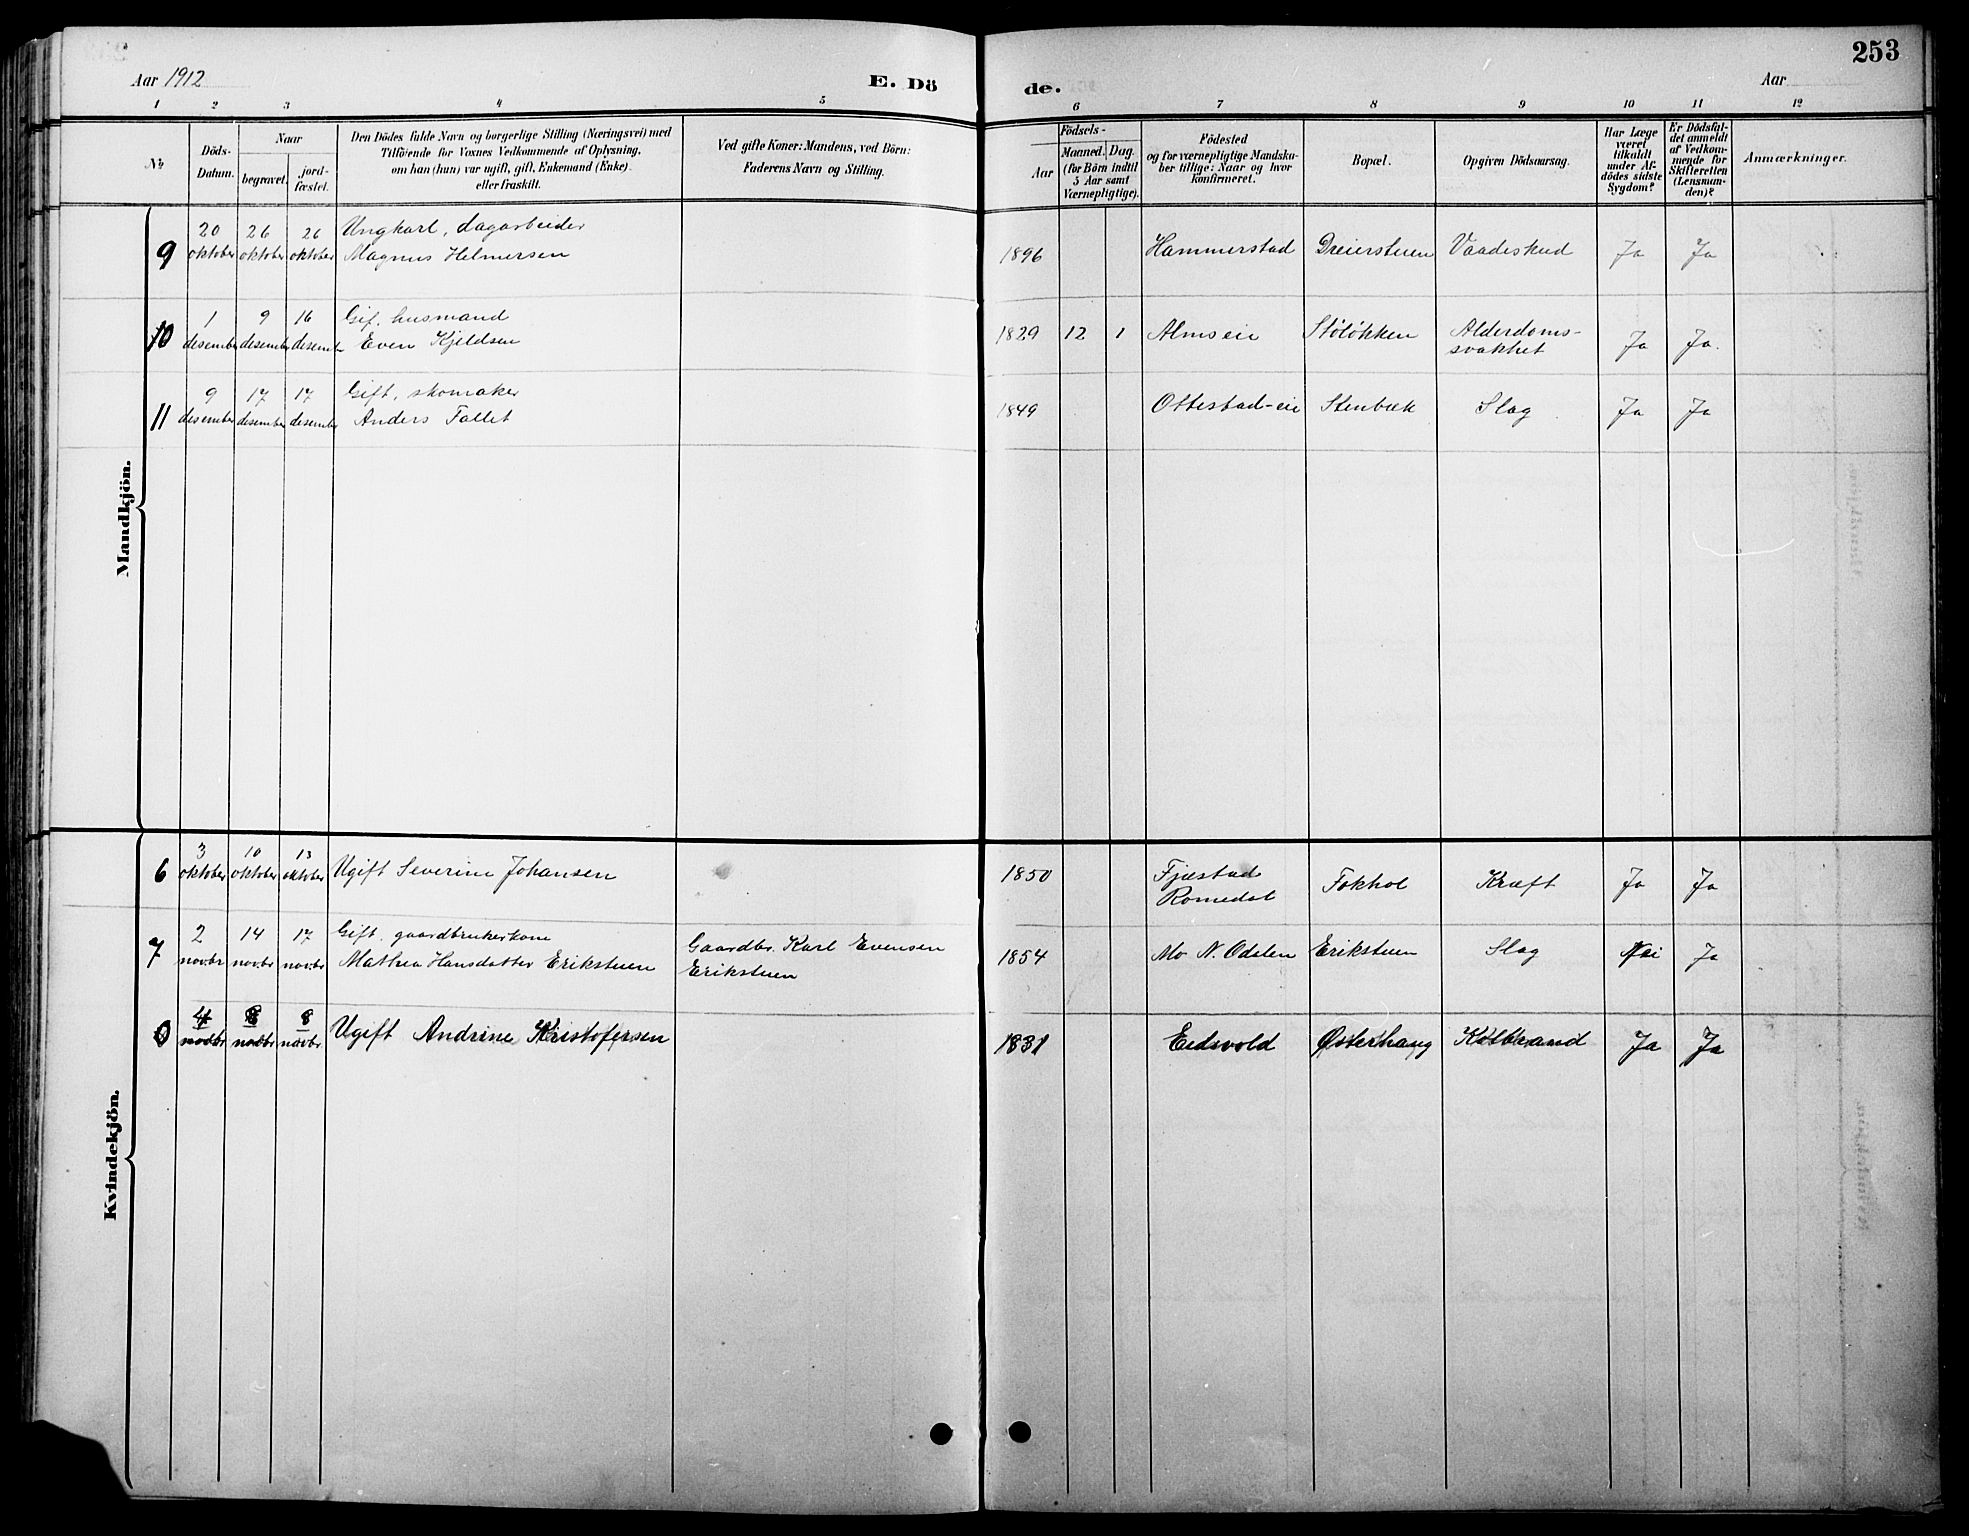 253
Aar 1912
E. Dö
de.
Aar
1 2 3 4 5 6 7 8 9 10 11 12
No
Döds-
Datum.
Naar
begravet.
jord-
fæstet.
Den Dödes fulde Navn og borgerlige Stilling (Næringsvei) med
Tilföiende for Voxnes Vedkommende af Oplysning,
om han (hun) var ugift, gift, Enkemand (Enke)
eller fraskilt.
Ved gifte Koner: Mandens, ved Börn:
Faderens Navn og Stilling.
Födsels-
Aar
Maaned.
Dag
(for Börn indtil
5 Aar samt
Værnepligtige).
Födested
og for værnepligtige Mandska-
ber tillige: Naar og hvor
konfirmeret.
Bopæl.
Opgiven Dödsaarsag.
Har Læge
været
tilkaldt
under Af-
dödes sidste
Sygdom?
Er Dödsfal-
det anmeldt
af Vedkom-
mende for
Skifteretten
(Lensman-
den)?
Anmærkninger.
Mandkjön.
9 20 oktober 26 oktober 26 oktober Ungkarl, dagarbeider
Magnus Helmersen 1896 Hammerstad Dreierstuen Vaadeskud Ja Ja
10 1 desember 9 desember 16 desember Gif. husmand
Even Kjeldsen 1829 12 1 Almseie Støløkken Alderdoms-
svakhet Ja Ja.
11 9 desember 17 desember 17 desember Gift, skomaker
Anders Tollet 1849 Ottestad-eie Stenbæk Slag Ja Ja
Kvindekjön.
6 3 oktober 10 oktober 13 oktober Ugift Severine Johansen 1850 Fjæstad
Romedal Fokhol Kræft Ja Ja
7 2 novbr 14 novbr 17 novbr Gift. gaardbrukerkone
Mathea Hansdatter Erikstuen Gaardbr. Karl Evensen
Erikstuen 1854 Mo N. Odalen Erikstuen Slag Nei Ja
4 novbr 8 novbr 8 novbr Ugift Andrine Kristofersen 1831 Eidsvold Østerhaug Koldbrand Ja Ja